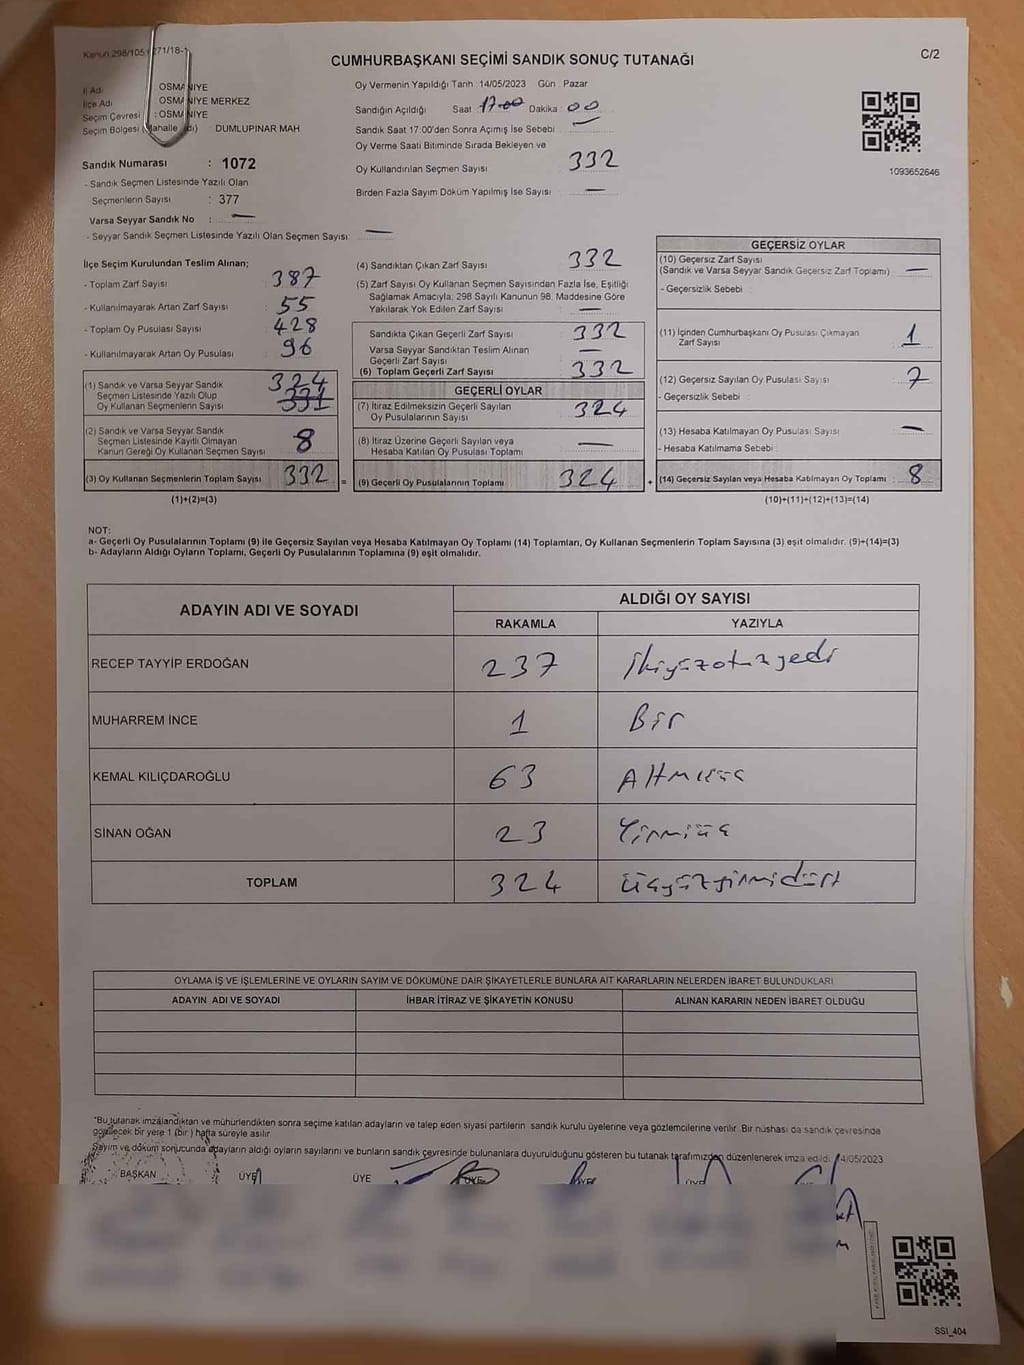 Kanun 298/105 271/18-1
CUMHURBAŞKANI SEÇİMİ SANDIK SONUÇ TUTANAĞI
C/2
İl Adı OSMANİYE
İlçe Adı OSMANİYE MERKEZ
Seçim Çevresi : OSMANİYE
Seçim Bölgesi (Mahalle Adı) DUMLUPINAR MAH
Sandık Numarası : 1072
- Sandık Seçmen Listesinde Yazılı Olan
Seçmenlerin Sayısı : 377
Varsa Seyyar Sandık No : —
- Seyyar Sandık Seçmen Listesinde Yazılı Olan Seçmen Sayısı: —
Oy Vermenin Yapıldığı Tarih 14/05/2023 Gün Pazar
Sandığın Açıldığı Saat 17:00 Dakika : 00
Sandık Saat 17:00'den Sonra Açımış İse Sebebi —
Oy Verme Saati Bitiminde Sırada Bekleyen ve
Oy Kullandırılan Seçmen Sayısı 332
Birden Fazla Sayım Döküm Yapılmış İse Sayısı —
1093652646
İlçe Seçim Kurulundan Teslim Alınan;
- Toplam Zarf Sayısı : 387
- Kullanılmayarak Artan Zarf Sayısı : 55
- Toplam Oy Pusulası Sayısı : 428
- Kullanılmayarak Artan Oy Pusulası : 96
(1) Sandık ve Varsa Seyyar Sandık
Seçmen Listesinde Yazılı Olup
Oy Kullanan Seçmenlerin Sayısı : 324 331
(2) Sandık ve Varsa Seyyar Sandık
Seçmen Listesinde Kayıtlı Olmayan
Kanun Gereği Oy Kullanan Seçmen Sayısı : 8
(3) Oy Kullanan Seçmenlerin Toplam Sayısı : 332
(1)+(2)=(3)
(4) Sandıktan Çıkan Zarf Sayısı : 332
(5) Zarf Sayısı Oy Kullanan Seçmen Sayısından Fazla İse, Eşitliği
Sağlamak Amacıyla, 298 Sayılı Kanunun 98. Maddesine Göre
Yakılarak Yok Edilen Zarf Sayısı : —
Sandıkta Çıkan Geçerli Zarf Sayısı : 332
Varsa Seyyar Sandıktan Teslim Alınan
Geçerli Zarf Sayısı : —
(6) Toplam Geçerli Zarf Sayısı : 332
GEÇERLİ OYLAR
(7) İtiraz Edilmeksizin Geçerli Sayılan
Oy Pusulalarının Sayısı : 324
(8) İtiraz Üzerine Geçerli Sayılan veya
Hesaba Katılan Oy Pusulası Toplamı : —
= (9) Geçerli Oy Pusulalarının Toplamı : 324
GEÇERSİZ OYLAR
(10) Geçersiz Zarf Sayısı
(Sandık ve Varsa Seyyar Sandık Geçersiz Zarf Toplamı) : —
- Geçersizlik Sebebi :
(11) İçinden Cumhurbaşkanı Oy Pusulası Çıkmayan
Zarf Sayısı : 1
(12) Geçersiz Sayılan Oy Pusulası Sayısı : 7
- Geçersizlik Sebebi :
(13) Hesaba Katılmayan Oy Pusulası Sayısı : —
- Hesaba Katılmama Sebebi :
+ (14) Geçersiz Sayılan veya Hesaba Katılmayan Oy Toplamı : 8
(10)+(11)+(12)+(13)=(14)
NOT:
a- Geçerli Oy Pusulalarının Toplamı (9) ile Geçersiz Sayılan veya Hesaba Katılmayan Oy Toplamı (14) Toplamları, Oy Kullanan Seçmenlerin Toplam Sayısına (3) eşit olmalıdır. (9)+(14)=(3)
b- Adayların Aldığı Oyların Toplamı, Geçerli Oy Pusulalarının Toplamına (9) eşit olmalıdır.
ADAYIN ADI VE SOYADI
ALDIĞI OY SAYISI
RAKAMLA YAZIYLA
RECEP TAYYİP ERDOĞAN 237 İkiyüzotuzyedi
MUHARREM İNCE 1 Bir
KEMAL KILIÇDAROĞLU 63 Altmışüç
SİNAN OĞAN 23 Yirmiüç
TOPLAM 324 üçyüzyirmidört
OYLAMA İŞ VE İŞLEMLERİNE VE OYLARIN SAYIM VE DÖKÜMÜNE DAİR ŞİKAYETLERLE BUNLARA AİT KARARLARIN NELERDEN İBARET BULUNDUKLARI
ADAYIN ADI VE SOYADI İHBAR İTİRAZ VE ŞİKAYETİN KONUSU ALINAN KARARIN NEDEN İBARET OLDUĞU
*Bu tutanak imzalandıktan ve mühürlendikten sonra seçime katılan adayların ve talep eden siyasi partilerin sandık kurulu üyelerine veya gözlemcilerine verilir. Bir nüshası da sandık çevresinde
görülecek bir yere 1 (bir) hafta süreyle asılır.
Sayım ve döküm sonucunda adayların aldığı oyların sayılarını ve bunların sandık çevresinde bulunanlara duyurulduğunu gösteren bu tutanak tarafımızdan düzenlenerek imza edildi. 14/05/2023
BAŞKAN ÜYE ÜYE ÜYE ÜYE ÜYE
SSI_404